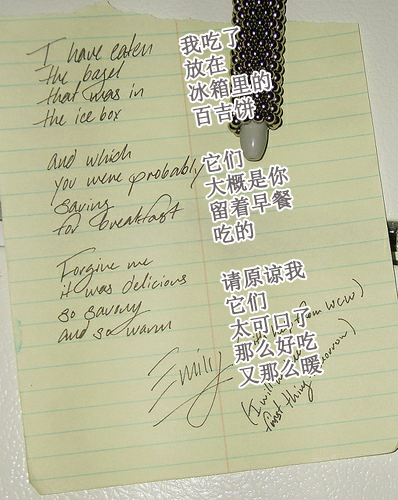 I have eaten
the bagel
that was in
the ice box
and which
you were probably
saving
for breakfast
Forgive me
it was delicious
so savory
and so warm
Emily
from WCW)
(I will
first thing
我吃了
放在
冰箱里的
百吉饼
它们
大概是你
留着早餐
吃的
请原谅我
它们
太可口了
那么好吃
又那么暖